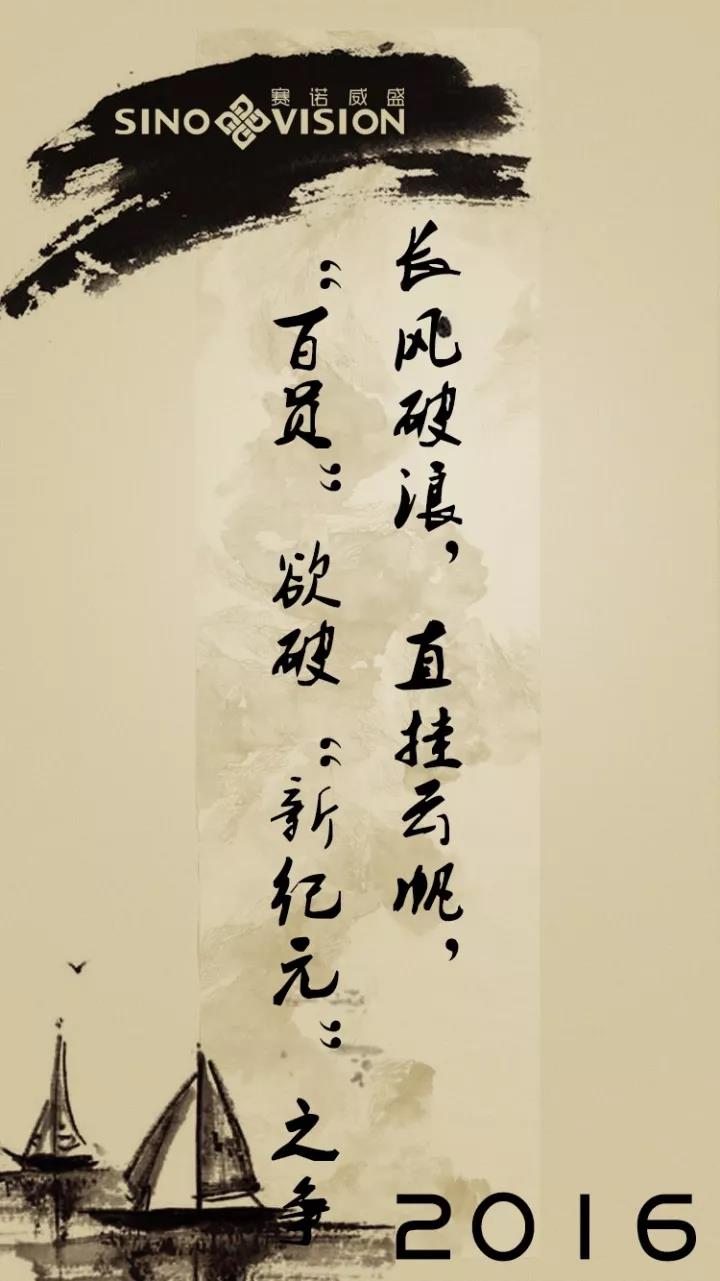 赛诺威盛
SINO VISION
长风破浪，直挂云帆，
“百员”欲破“新纪元”之争
2016